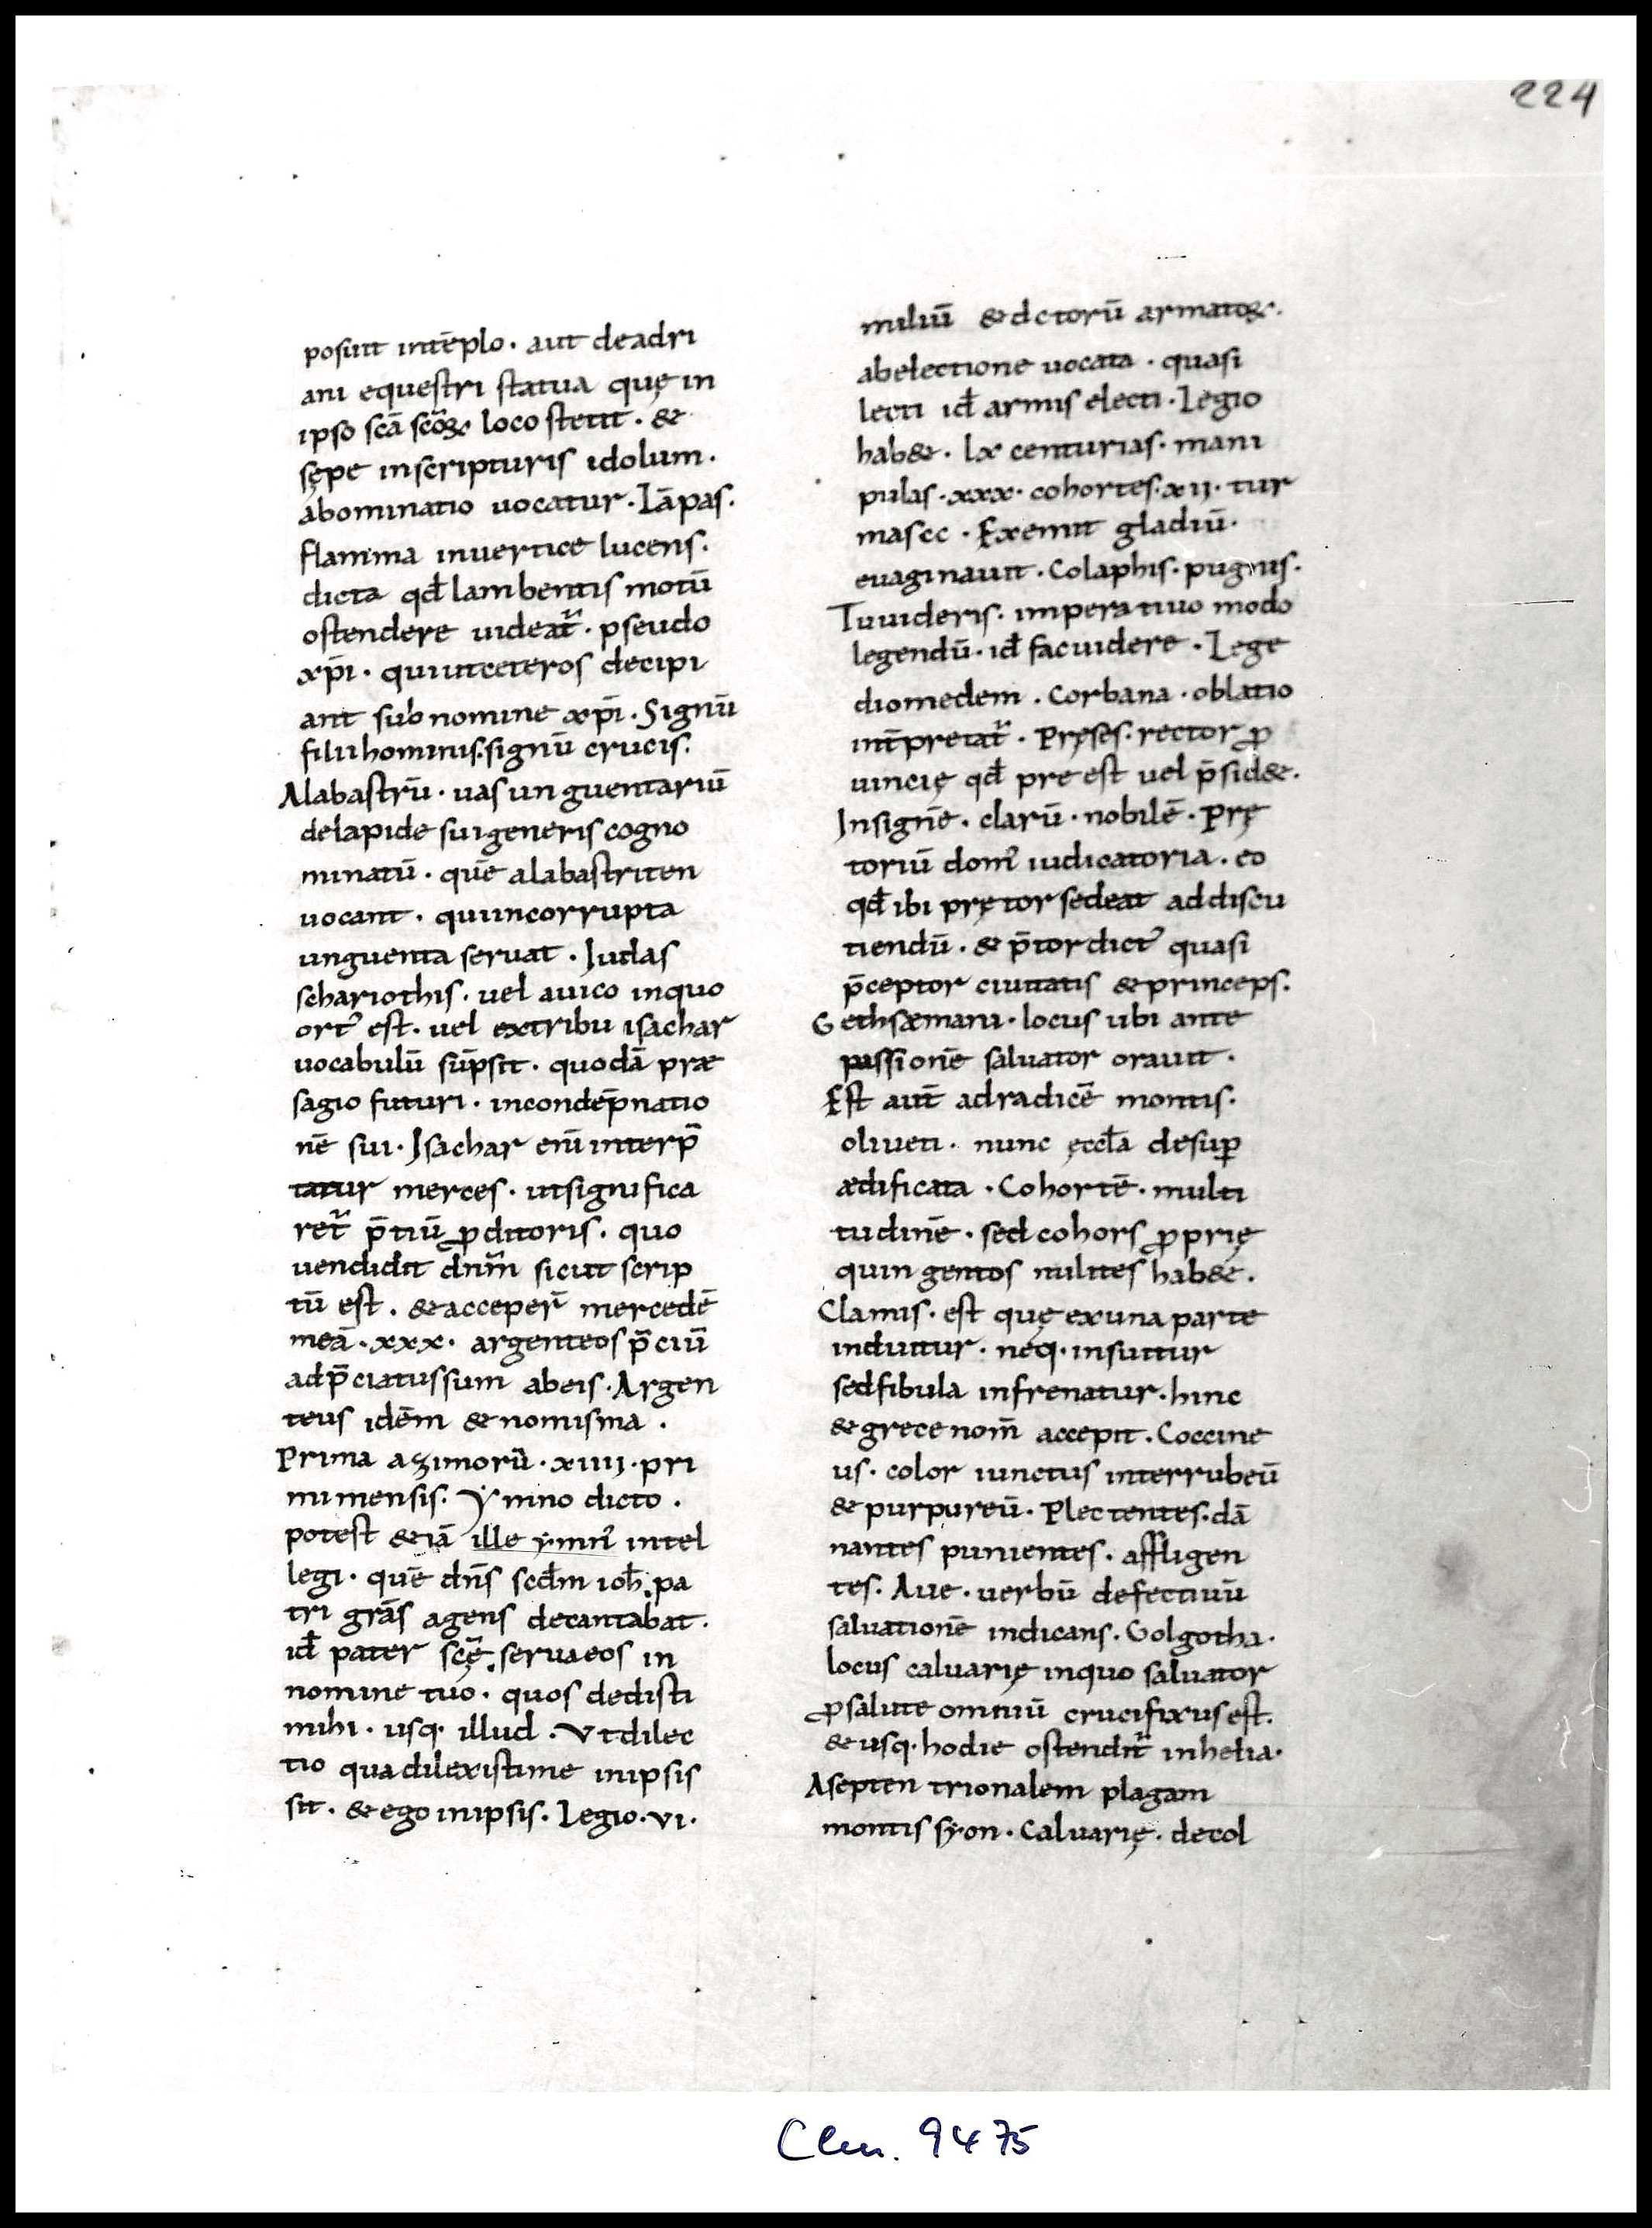 224
posuit intēplo · aut deadri
ani equestri statua quę in
ipso scā scōꝝ loco stetit · &
sępe inscripturis idolum ·
abominatio uocatur · Lāpas ·
flamma inuertice lucens ·
dicta qđ lambentis motū
ostendere uideat᷑ · pseudo
xp̄i · quiutceteros decipi
ant sub nomine xp̄i · Signū
filii hominis · signū crucis ·
Alabastrū · uas unguentariū
delapide suigeneris cogno
minatū · quē alabastriten
uocant · quiincorrupta
unguenta seruat · Iudas
schariothis · uel auico inquo
ort᷒ est · uel extribu isachar
uocabulū sūpsit · quodā præ
sagio futuri · incondēpnatio
nē sui · Isachar enī interp̄
tatur merces · utsignifica
ret᷑ p̄tiū ꝓditoris · quo
uendidit dnm̄ sicut scrip
tū est · & acceper̄ mercedē
meā · xxx · argenteos p̄ciū
adp̄ciatussum abeis · Argen
teus idēm & nomisma ·
Prima azimorū · xiiii · pri
mi mensis · Ymno dicto ·
potest & iā ille ymn᷒ intel
legi · quē dn̄s scđm ioh̄ · pa
tri grās agens decantabat ·
iđ pater scę̄ · seruaeos in
nomine tuo · quos dedisti
mihi · usq · illud · Vtdilec
tio quadilexistime inipsis
sit · & ego inipsis · Legio · vi ·
miliū & dctorū armatoꝝ ·
abelectione uocata · quasi
lecti iđ armis electi · Legio
hab& · lx centurias · mani
pulas · xxx · cohortes · xii · tur
mascc · Exemit gladiū ·
euaginauit · Colaphis · pugnis ·
Tuuideris · imperatiuo modo
legendū · iđ facuidere · Lege
diomedem · Corbana · oblatio
int̄pretat᷑ · Pręses · rector ꝓ
uincię qđ pre est uel p̄sid& ·
Insignē · clarū · nobilē · Prę
toriū dom᷒ iudicatoria · eo
qđ ibi prętor sedeat addiscu
tiendū · & p̄tor dict᷒ quasi
p̄ceptor ciuitatis & princeps ·
Gethsæmani · locus ubi ante
passionē saluator orauit ·
Est aut̄ adradicē montis ·
oliueti · nunc ęccła desuꝑ
ædificata · Cohortē · multi
tudinē · sed cohors ꝓprię
quingentos milites hab& ·
Clamis · est quę exuna parte
induitur · neq · insuitur
sedfibula infrenatur · hinc
& grece nom̄ accepit · Coccine
us · color iunctus interrubeū
& purpureū · Plectentes · dā
nantes punientes · affligen
tes · Aue · uerbū defectiuū
saluationē indicans · Golgotha ·
locus caluarię inquo saluator
ꝓsalute omniū crucifixus est ·
& usq · hodie ostendit᷑ inhelia ·
Asepten trionalem plagam
montis syon · Caluarię · decol
Clm. 9475